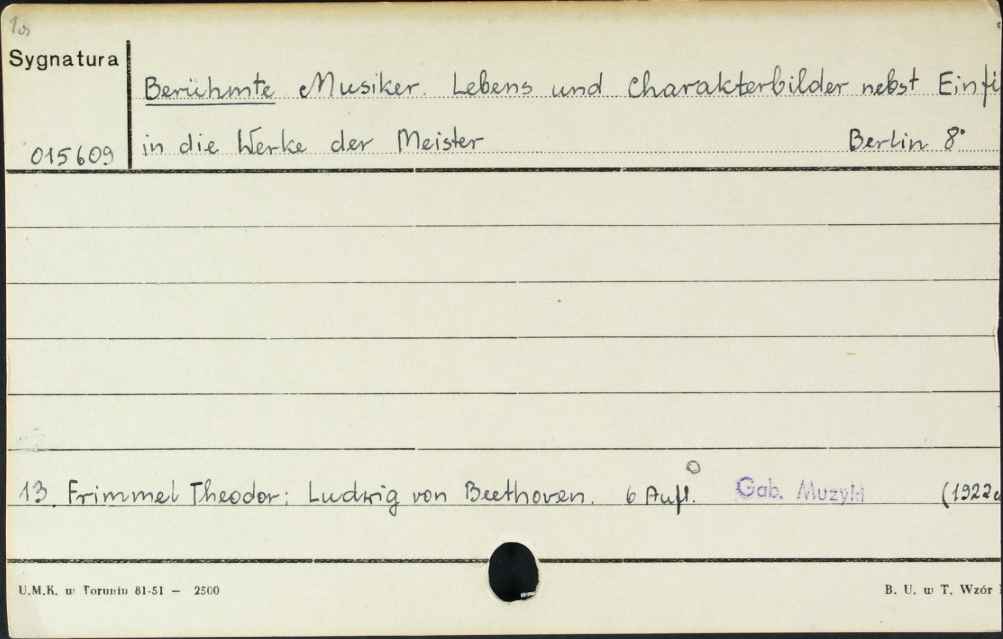 Sygnatura
Berühmte Musiker. Lebens und Charakterbilder nebst Einfü
015609 in die Werke der Meister Berlin 8°
13. Frimmel Theodor: Ludwig von Beethoven. 6 Aufl. Gab. Muzyki (1922
U.M.K. w Toruniu 81-51 — 2500 B. U. w T. Wzór